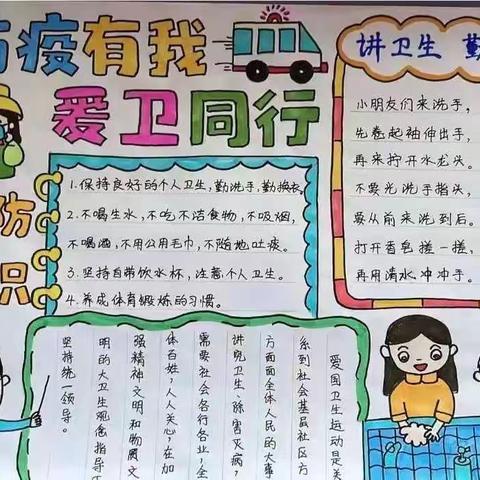 防疫有我
爱卫同行
讲卫生 勤
小朋友们来洗手,
先卷起袖伸出手,
再来拧开水龙头。
不要光洗手指头,
要从前来洗到后。
打开香皂搓一搓,
再用清水冲冲手。
1.保持良好的个人卫生,勤洗手,勤换衣。
2.不喝生水,不吃不洁食物,不吸烟,
不喝酒,不用公用毛巾,不随地吐痰。
3.坚持自带饮水杯,注意个人卫生。
4.养成体育锻炼的习惯。
防
识
爱国卫生运动是关
系到社会基层社区方
方面面全体人民的大事
讲究卫生、除害灭病,
需要社会各行各业,全
体百姓,人人关心,在加
强精神文明和物质文
明的大卫生观念指导下
坚持统一领导。